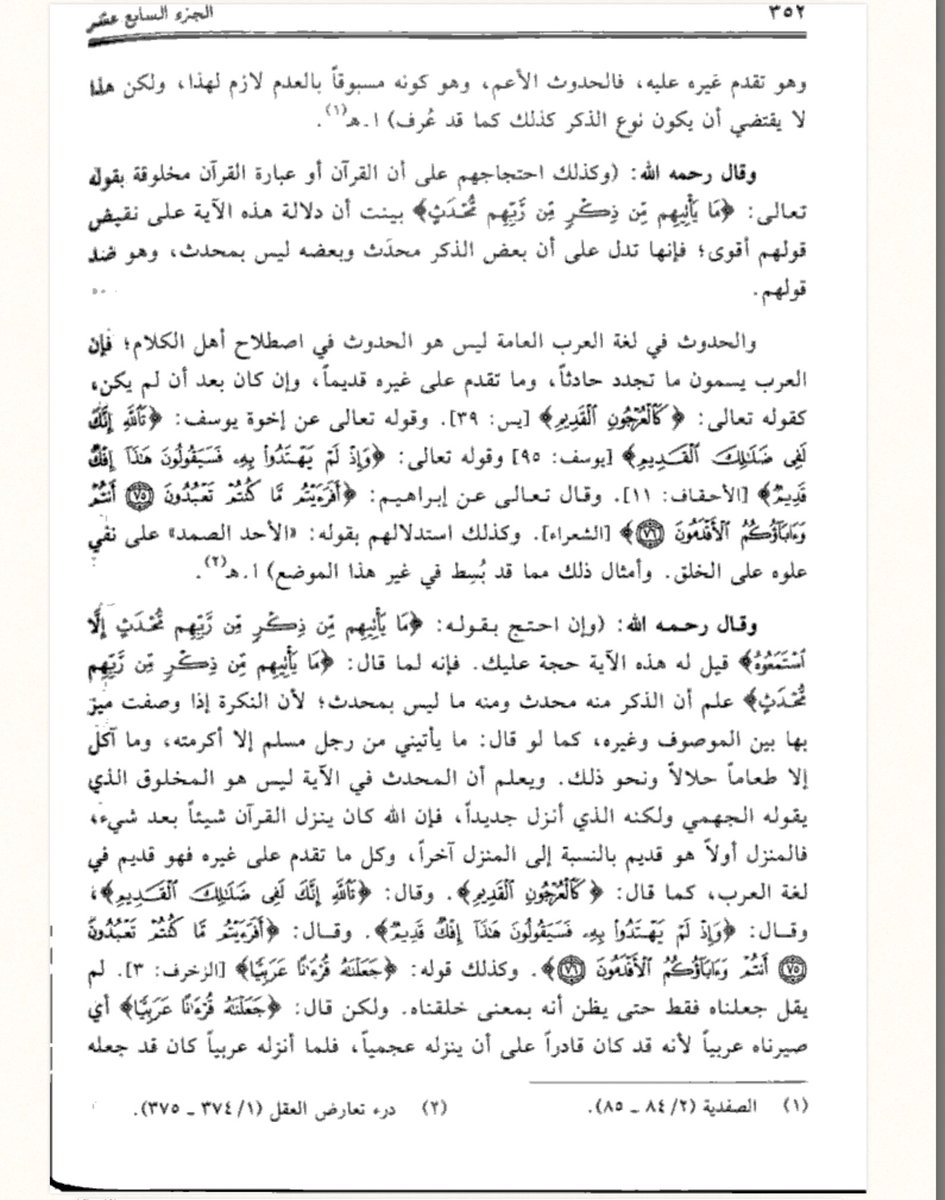 ٣٥٢
الجزء السابع عشر
وهو تقدم غيره عليه، فالحدوث الأعم، وهو كونه مسبوقاً بالعدم لازم لهذا، ولكن هذا
لا يقتضي أن يكون نوع الذكر كذلك كما قد عُرف) ا.هـ(١).
وقال رحمه الله: (وكذلك احتجاجهم على أن القرآن أو عبارة القرآن مخلوقة بقوله
تعالى: ﴿مَا يَأْتِيهِم مِّن ذِكْرٍ مِّن رَّبِّهِم مُّحْدَثٍ﴾ بينت أن دلالة هذه الآية على نقيض
قولهم أقوى؛ فإنها تدل على أن بعض الذكر محدَث وبعضه ليس بمحدث، وهو ضد
قولهم.
والحدوث في لغة العرب العامة ليس هو الحدوث في اصطلاح أهل الكلام؛ فإن
العرب يسمون ما تجدد حادثاً، وما تقدم على غيره قديماً، وإن كان بعد أن لم يكن،
كقوله تعالى: ﴿كَالْعُرْجُونِ الْقَدِيمِ﴾ [يس: ٣٩]. وقوله تعالى عن إخوة يوسف: ﴿تَاللَّهِ إِنَّكَ
لَفِي ضَلَالِكَ الْقَدِيمِ﴾ [يوسف: ٩٥] وقوله تعالى: ﴿وَإِذْ لَمْ يَهْتَدُوا بِهِ فَسَيَقُولُونَ هَذَا إِفْكٌ
قَدِيمٌ﴾ [الأحقاف: ١١]. وقال تعالى عن إبراهيم: ﴿أَفَرَءَيْتُم مَّا كُنتُمْ تَعْبُدُونَ ٧٥ أَنتُمْ
وَءَابَآؤُكُمُ الْأَقْدَمُونَ ٧٦﴾ [الشعراء]. وكذلك استدلالهم بقوله: «الأحد الصمد» على نفي
علوه على الخلق. وأمثال ذلك مما قد بُسِط في غير هذا الموضع) ا.هـ(٢).
وقال رحمه الله: (وإن احتج بقوله: ﴿مَا يَأْتِيهِم مِّن ذِكْرٍ مِّن رَّبِّهِم مُّحْدَثٍ إِلَّا
اسْتَمَعُوهُ﴾ قيل له هذه الآية حجة عليك. فإنه لما قال: ﴿مَا يَأْتِيهِم مِّن ذِكْرٍ مِّن رَّبِّهِم
مُّحْدَثٍ﴾ علم أن الذكر منه محدث ومنه ما ليس بمحدث؛ لأن النكرة إذا وصفت ميز
بها بين الموصوف وغيره، كما لو قال: ما يأتيني من رجل مسلم إلا أكرمته، وما آكل
إلا طعاماً حلالاً ونحو ذلك. ويعلم أن المحدث في الآية ليس هو المخلوق الذي
يقوله الجهمي ولكنه الذي أنزل جديداً، فإن الله كان ينزل القرآن شيئاً بعد شيء،
فالمنزل أولاً هو قديم بالنسبة إلى المنزل آخراً، وكل ما تقدم على غيره فهو قديم في
لغة العرب، كما قال: ﴿كَالْعُرْجُونِ الْقَدِيمِ﴾. وقال: ﴿تَاللَّهِ إِنَّكَ لَفِي ضَلَالِكَ الْقَدِيمِ﴾،
وقال: ﴿وَإِذْ لَمْ يَهْتَدُوا بِهِ فَسَيَقُولُونَ هَذَا إِفْكٌ قَدِيمٌ﴾. وقال: ﴿أَفَرَءَيْتُم مَّا كُنتُمْ تَعْبُدُونَ
٧٥ أَنتُمْ وَءَابَآؤُكُمُ الْأَقْدَمُونَ ٧٦﴾. وكذلك قوله: ﴿جَعَلْنَهُ قُرْءَانًا عَرَبِيًّا﴾ [الزخرف: ٣]. لم
يقل جعلناه فقط حتى يظن أنه بمعنى خلقناه. ولكن قال: ﴿جَعَلْنَهُ قُرْءَانًا عَرَبِيًّا﴾ أي
صيرناه عربياً لأنه قد كان قادراً على أن ينزله عجمياً، فلما أنزله عربياً كان قد جعله
(١) الصفدية (٨٤/٢ ـ ٨٥).
(٢) درء تعارض العقل (٣٧٤/١ ـ ٣٧٥).